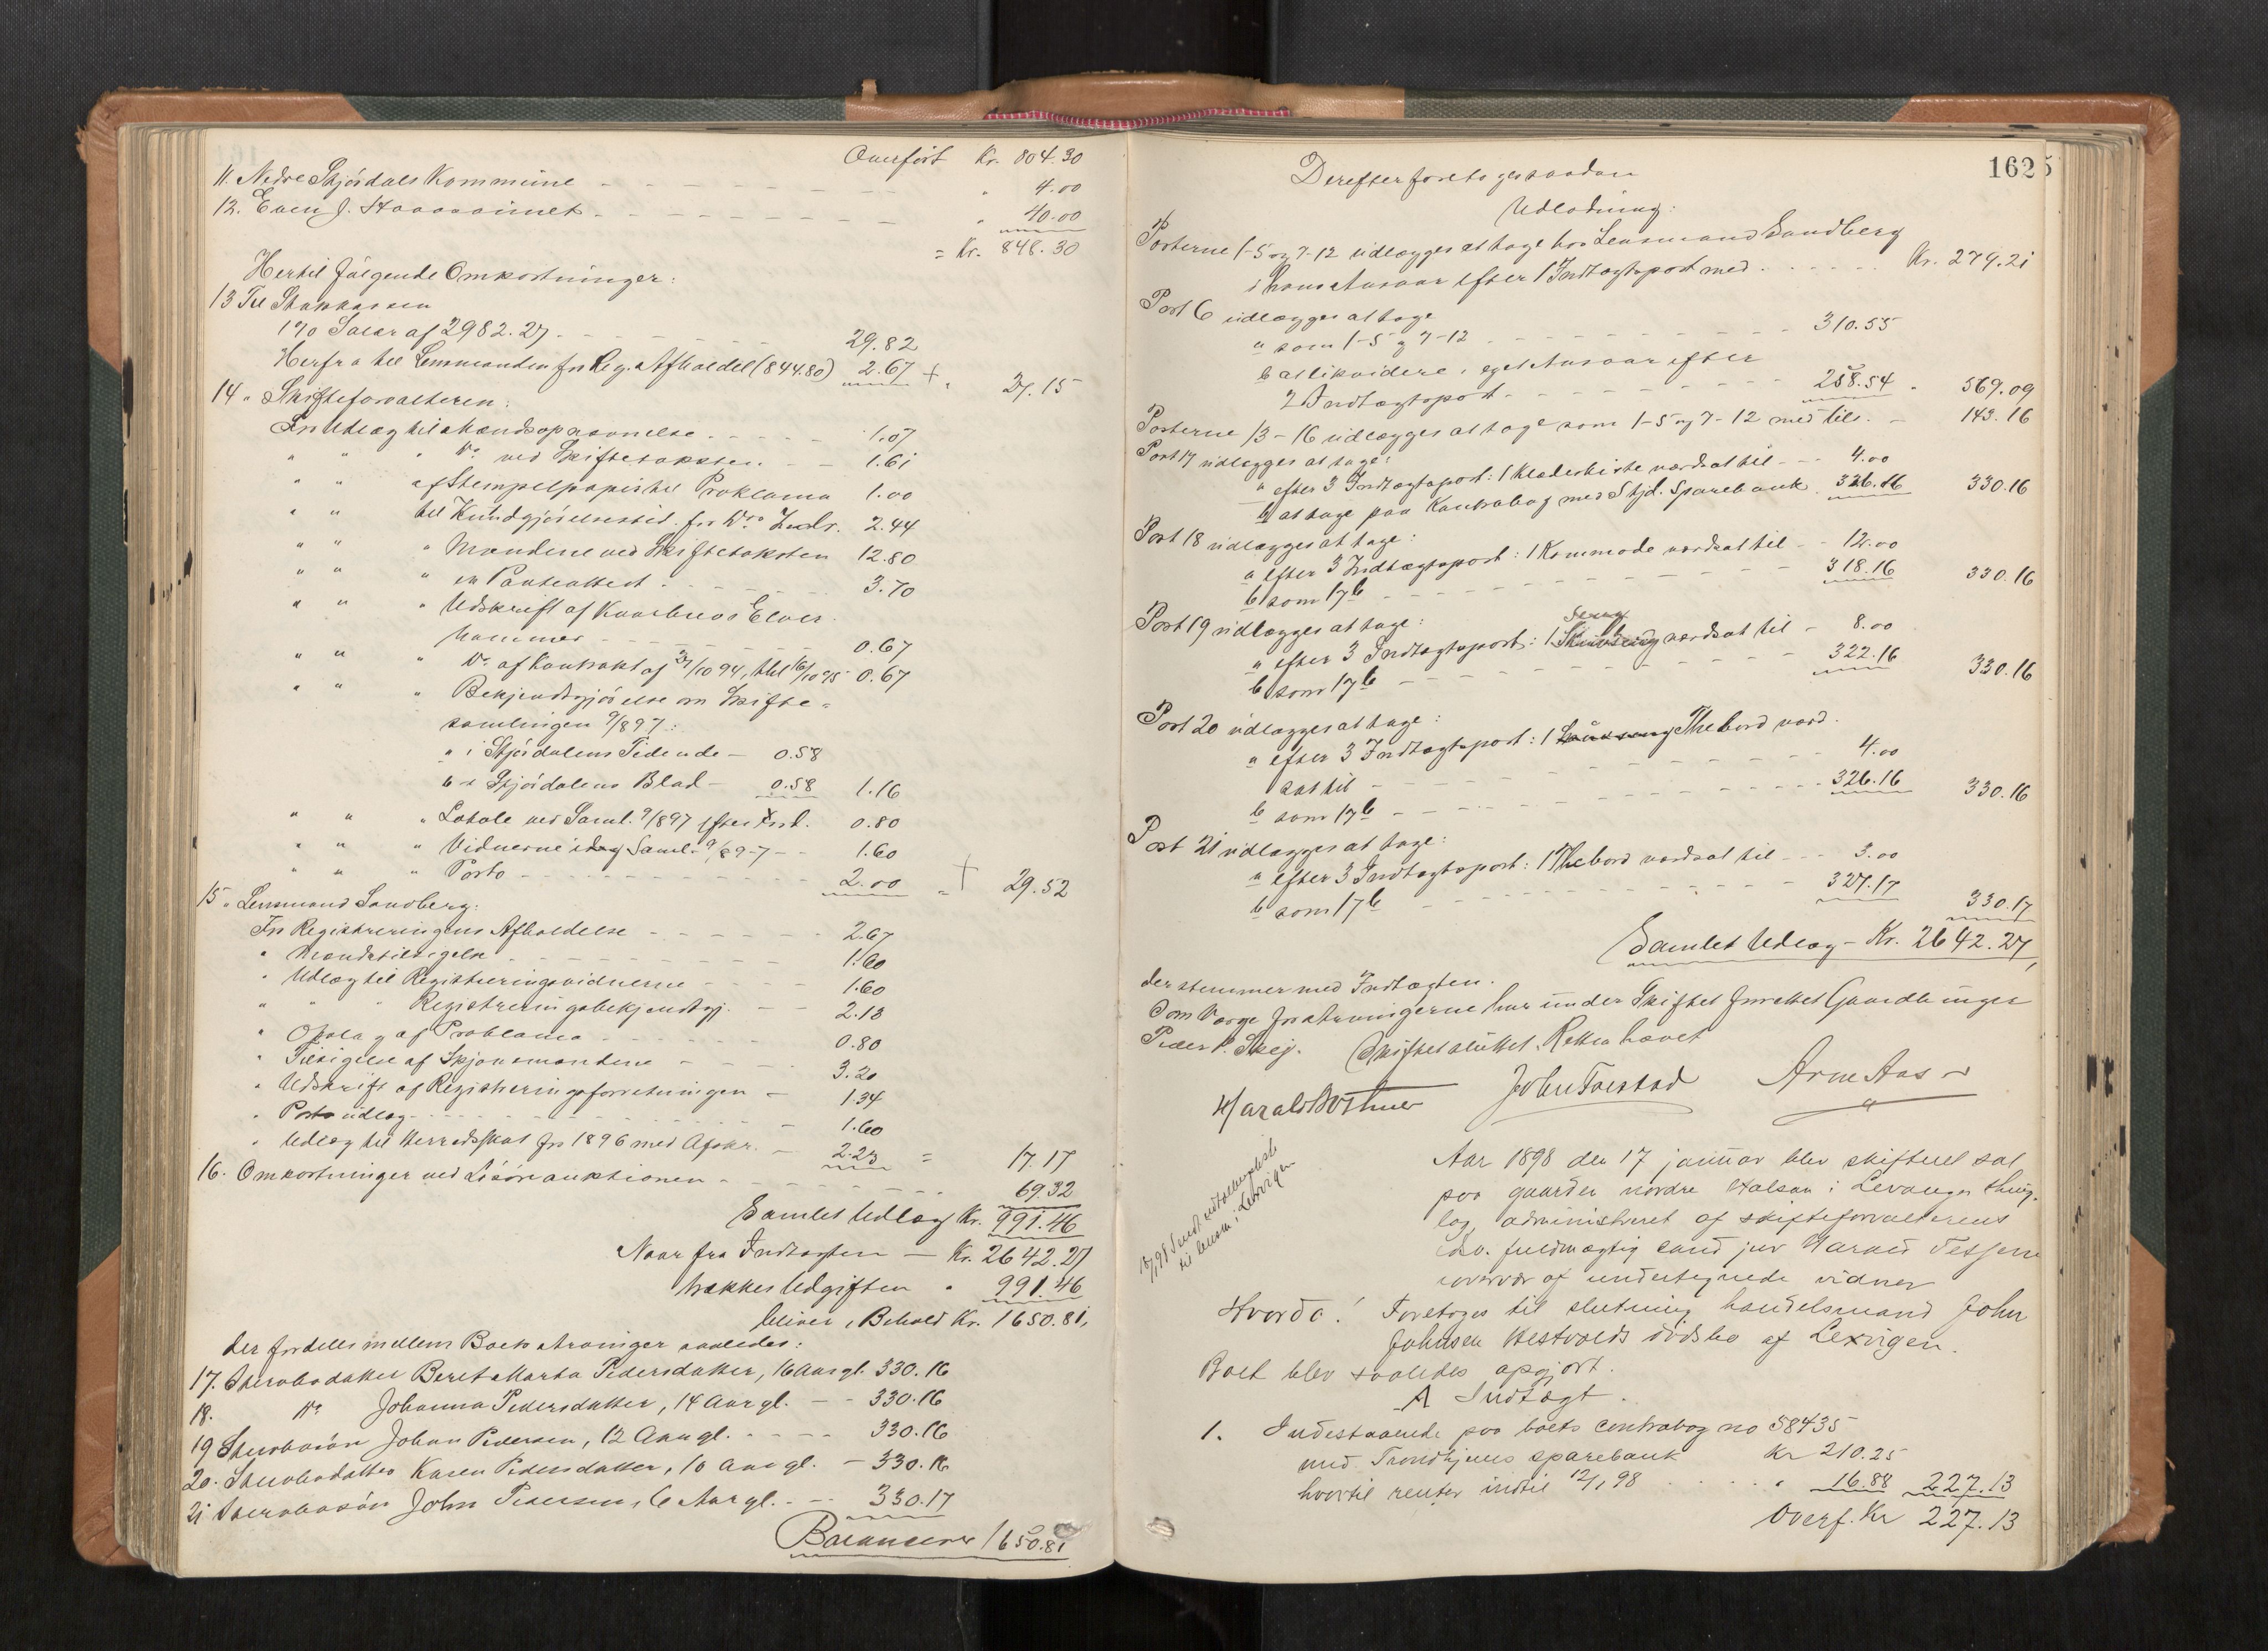 Overført Kr. 804.30
11. Nedre Stjørdals Kommune - - - " 4.00
12. Even J. - - - " 40.00
= Kr. 848.30
Hertil følgende Omkostninger:
13 Til Statskassen
1% Salær af 2982.27 - - - 29.82
Herfra til Lensmanden for Reg. Afholdel (844.80) 2.67 + " 27.15
14 " Skifteforvalteren:
For Udlæg til Mandsopnævnelse - - - 1.07
" " " Do ved Skiftetaksten - - 1.61
" " af Stempelpapir til Proklama 1.00
" " til Kundgjørelsestid. for Do Indr. 2.44
" " " Mændene ved Skiftetaksten 12.80
" " " en Panteattest - - - 3.70
" " " Udskrift af Kaarbrev Elvs-
hammer - - - 0.67
" " " Do af Kontrakt af 27/10 94, thl 16/10 95 0.67
" " " Bekjendtgjørelse om Skifte-
samlingen 9/8 97:
a i Stjørdalens Tidende - 0.58
b i Stjørdalens Blad - 0.58 1.16
" " " Lokale ved Saml. 9/8 97 efter Frd. 0.80
" " " Vidnerne idag Saml. 9/8 97 - - 1.60
" " " Porto - - - 2.00 = + 29.52
15 " Lensmand Sandberg:
For Registreringens Afholdelse - - - 2.67
" Mandstilsigelse - - - 1.60
" Udlæg til Registreringsvidnerne - - - 1.60
" " " Registreringsbekjendtgj. - - 2.13
" Opslag af Proklama - - - 0.80
" Tilsigelse af Skjønsmændene - - - 3.20
" Udskrift af Registreringsforretningen - 1.34
" Porto udlæg - - - 1.60
" Udlæg til Herredsskat for 1896 med Afskr. - 2.23 = 17.17
16. Omkostninger ved Løsøreauktionen - - - 69.32
Samlet Udlæg Kr. 991.46
Naar fra Indtægten - Kr. 2642.27
trækkes Udgiften " 991.46
bliver i Behold Kr. 1650.81,
der fordeles mellem Boets Arvinger saaledes:
17. Stervbodatter Beret Marta Pedersdatter, 16 Aar gl. 330.16
18. Do Johanna Pedersdatter, 14 Aar gl. - - 330.16
19 Stervbosøn Johan Pedersen, 12 Aar gl. - - - 330.16
20. Stervbodatter Karen Pedersdatter, 10 Aar gl. - 330.16
21 Stervbosøn John Pedersen, 6 Aar gl. - - 330.17
Balancerer 1650.81
1625
Derefter foretoges saadan
Udlodning:
Posterne 1-5 og 7-12 udlægges at tage hos Lensmand Sandberg
i hans Ansvar efter 1 Indtægtspost med - - - Kr. 279.21
Post 6 udlægges at tage
a som 1-5 og 7-12 - - - 310.55
b at likvidere i eget Ansvar efter
2 Indtægtspost - - - 258.54 " 569.09
Posterne 13-16 udlægges at tage som 1-5 og 7-12 med tils. - 143.16
Post 17 udlægges at tage:
a efter 3 Indtægtspost: 1 Klædeskiste værdsat til - - 4.00
b at tage paa Kontrabog med Stjd. Sparebank 326.16 330.16
Post 18 udlægges at tage:
a efter 3 Indtægtspost: 1 Kommode værdsat til - - 12.00
b som 17 b - - - 318.16 330.16
Post 19 udlægges at tage:
Seng
a efter 3 Indtægtspost: 1 værdsat til - 8.00
b som 17 b - - - 322.16 330.16
Post 20 udlægges at tage:
a efter 3 Indtægtspost: 1 Thebord værd-
sat til - - - 4.00
b som 17 b - - - 326.16 330.16
Post 21 udlægges at tage:
a efter 3 Indtægtspost: 1 Thebord værdsat til - - 3.00
b som 17 b - - - 327.17 330.17
Samlet Udlæg - Kr. 2642.27,
der stemmer med Indtægten.
Som Værge for Arvingerne har under Skiftet forrettet Gaardbruger
Peder P. Skej. Skiftet sluttet. Retten hævet
Harald Bothner John Forstad Arne Aas
Aar 1898 den 17 januar blev skifteret sat
paa gaarden nordre Halsan i Levanger thing-
lag, administreret af skifteforvalterens
edsv. fuldmægtig cand jur Harald
overvær af undertegnede vidner
Hvorda! Foretoges til slutning handelsmand John
Johnsen Hestvolds dødsbo af Lexvigen.
Boet blev saaledes opgjort.
A Indtægt.
18/1 98 Sendt
til lensm. i Lexvigen
1. Indestaaende paa boets contrabog no 58435
med Trondhjems sparebank Kr 210.25
hvortil renter indtil 12/1 98 - - - " 16.88 227.13
Overf. Kr 227.13